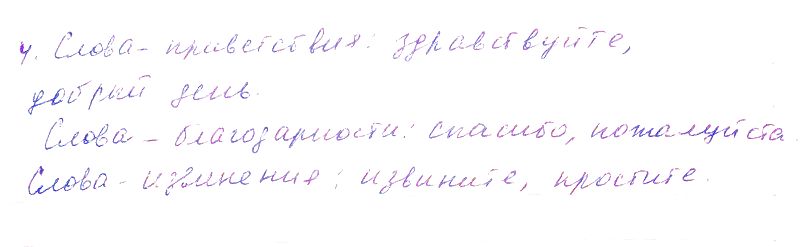 4. Слова - приветствия: здравствуйте,
добрый день.
Слова - благодарности: спасибо, пожалуйста.
Слова - извинения: извините, простите.